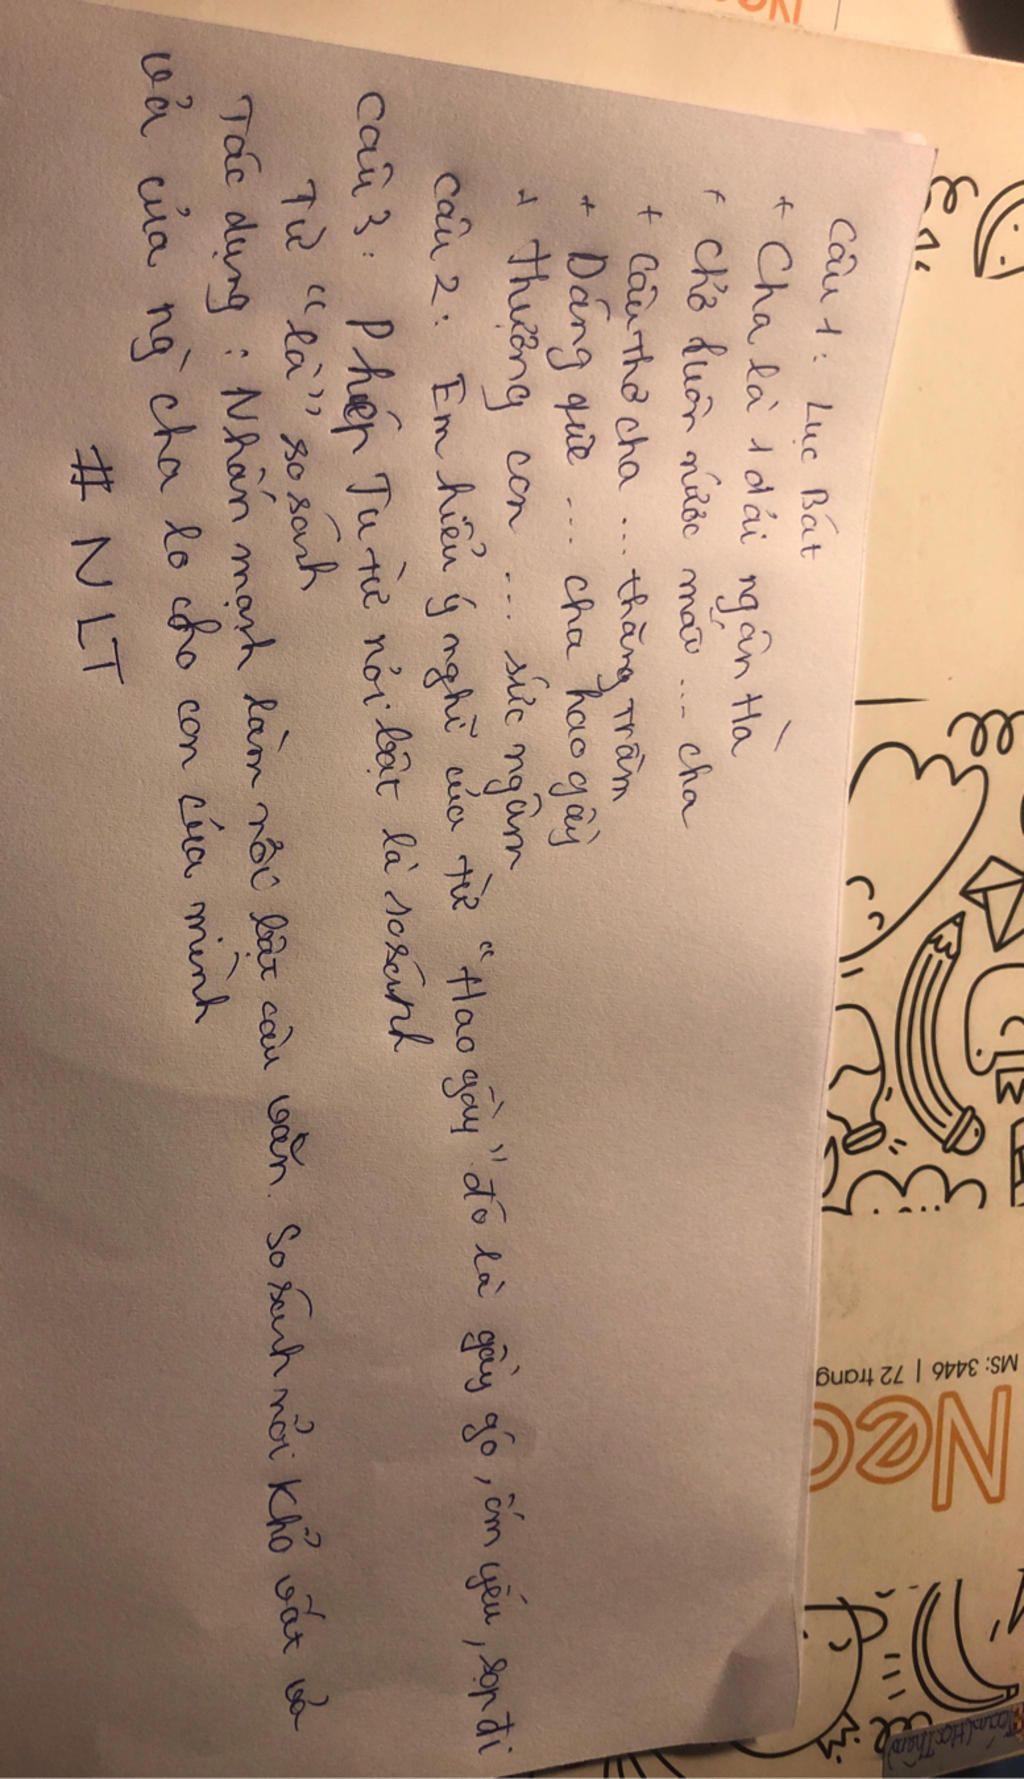 Câu 1: Lục Bát
+ Cha là 1 dải ngân Hà
+ Chở luôn nước mắt ... cha
+ Câu thơ cha ... thăng trầm
+ Dáng quê ... cha hao gầy
+ Thương con ... sức ngâm
Câu 2: Em hiểu ý nghĩ của từ "Hao gầy" đó là gầy gò, ốm yếu, sọp đi
Câu 3: Phép Tu từ nổi bật là so sánh
Từ "là" so sánh
Tác dụng: Nhấn mạnh làm nổi bật câu văn. So sánh nỗi khổ vất vả
vả của ng` cha lo cho con của mình
# NLT
MS: 3446 | 72 trang